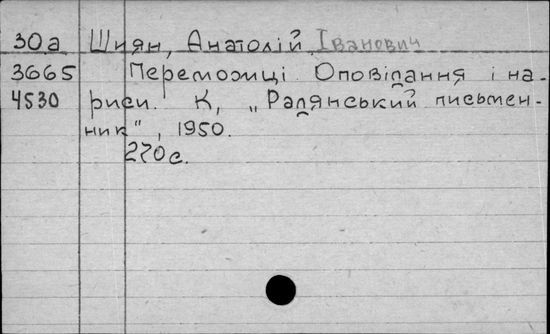 30а Шиян, Анатолій Іванович
3665 Переможці Оповідання і на-
4530 риси. К, „Радянський письмен-
ник", 1950.
270с.